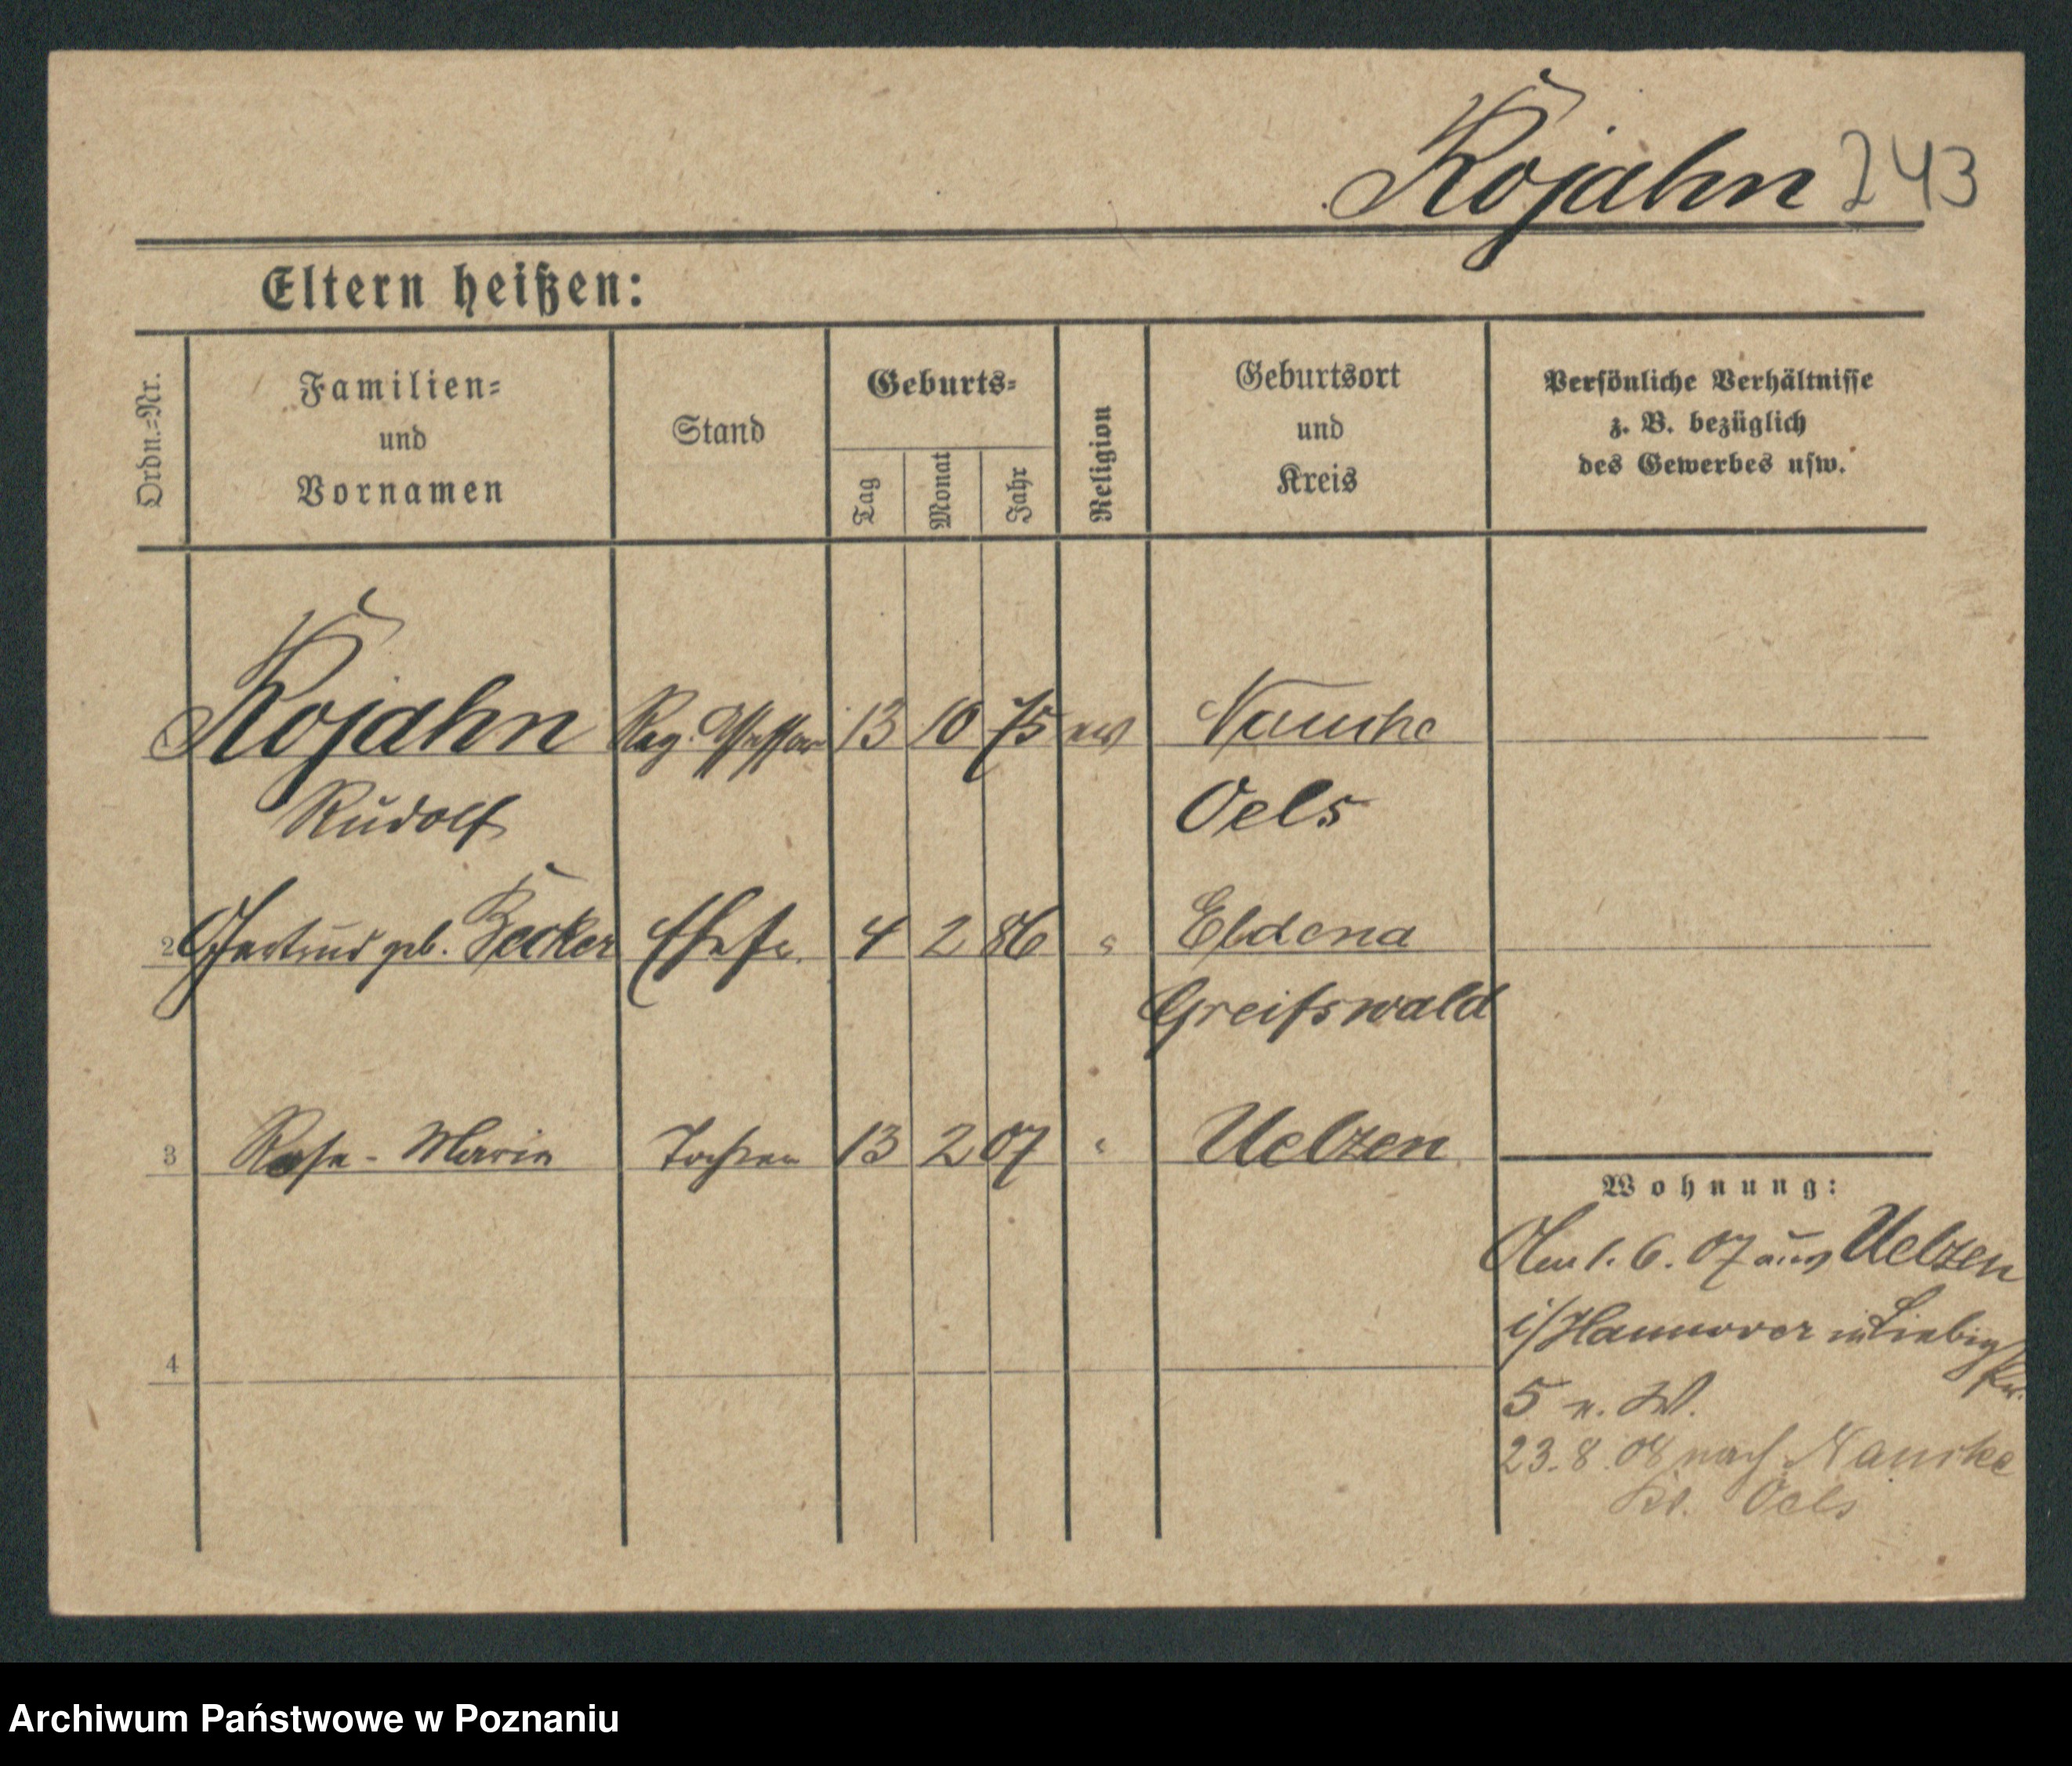 Kojahn 243
Eltern heißen:
Ordn.-Nr.
Familien-
und
Vornamen
Stand
Geburts-
Tag
Monat
Jahr
Religion
Geburtsort
und
Kreis
Persönliche Verhältnisse
z. B. bezüglich
des Gewerbes usw.
Kojahn Reg. Assessor 13 10 75 ev Nauche
Rudolf Oels
2 Gertrud geb. Becker Ehefr. 4 2 86 " Eldena
Greifswald
3 Rose-Marie Tochter 13 2 07 " Uelzen
Wohnung:
Am 1. 6. 07 aus Uelzen
i/Hannover in Liebig
5 n. W.
4
23. 8. 08 nach Nauche
Kr. Oels
Archiwum Państwowe w Poznaniu